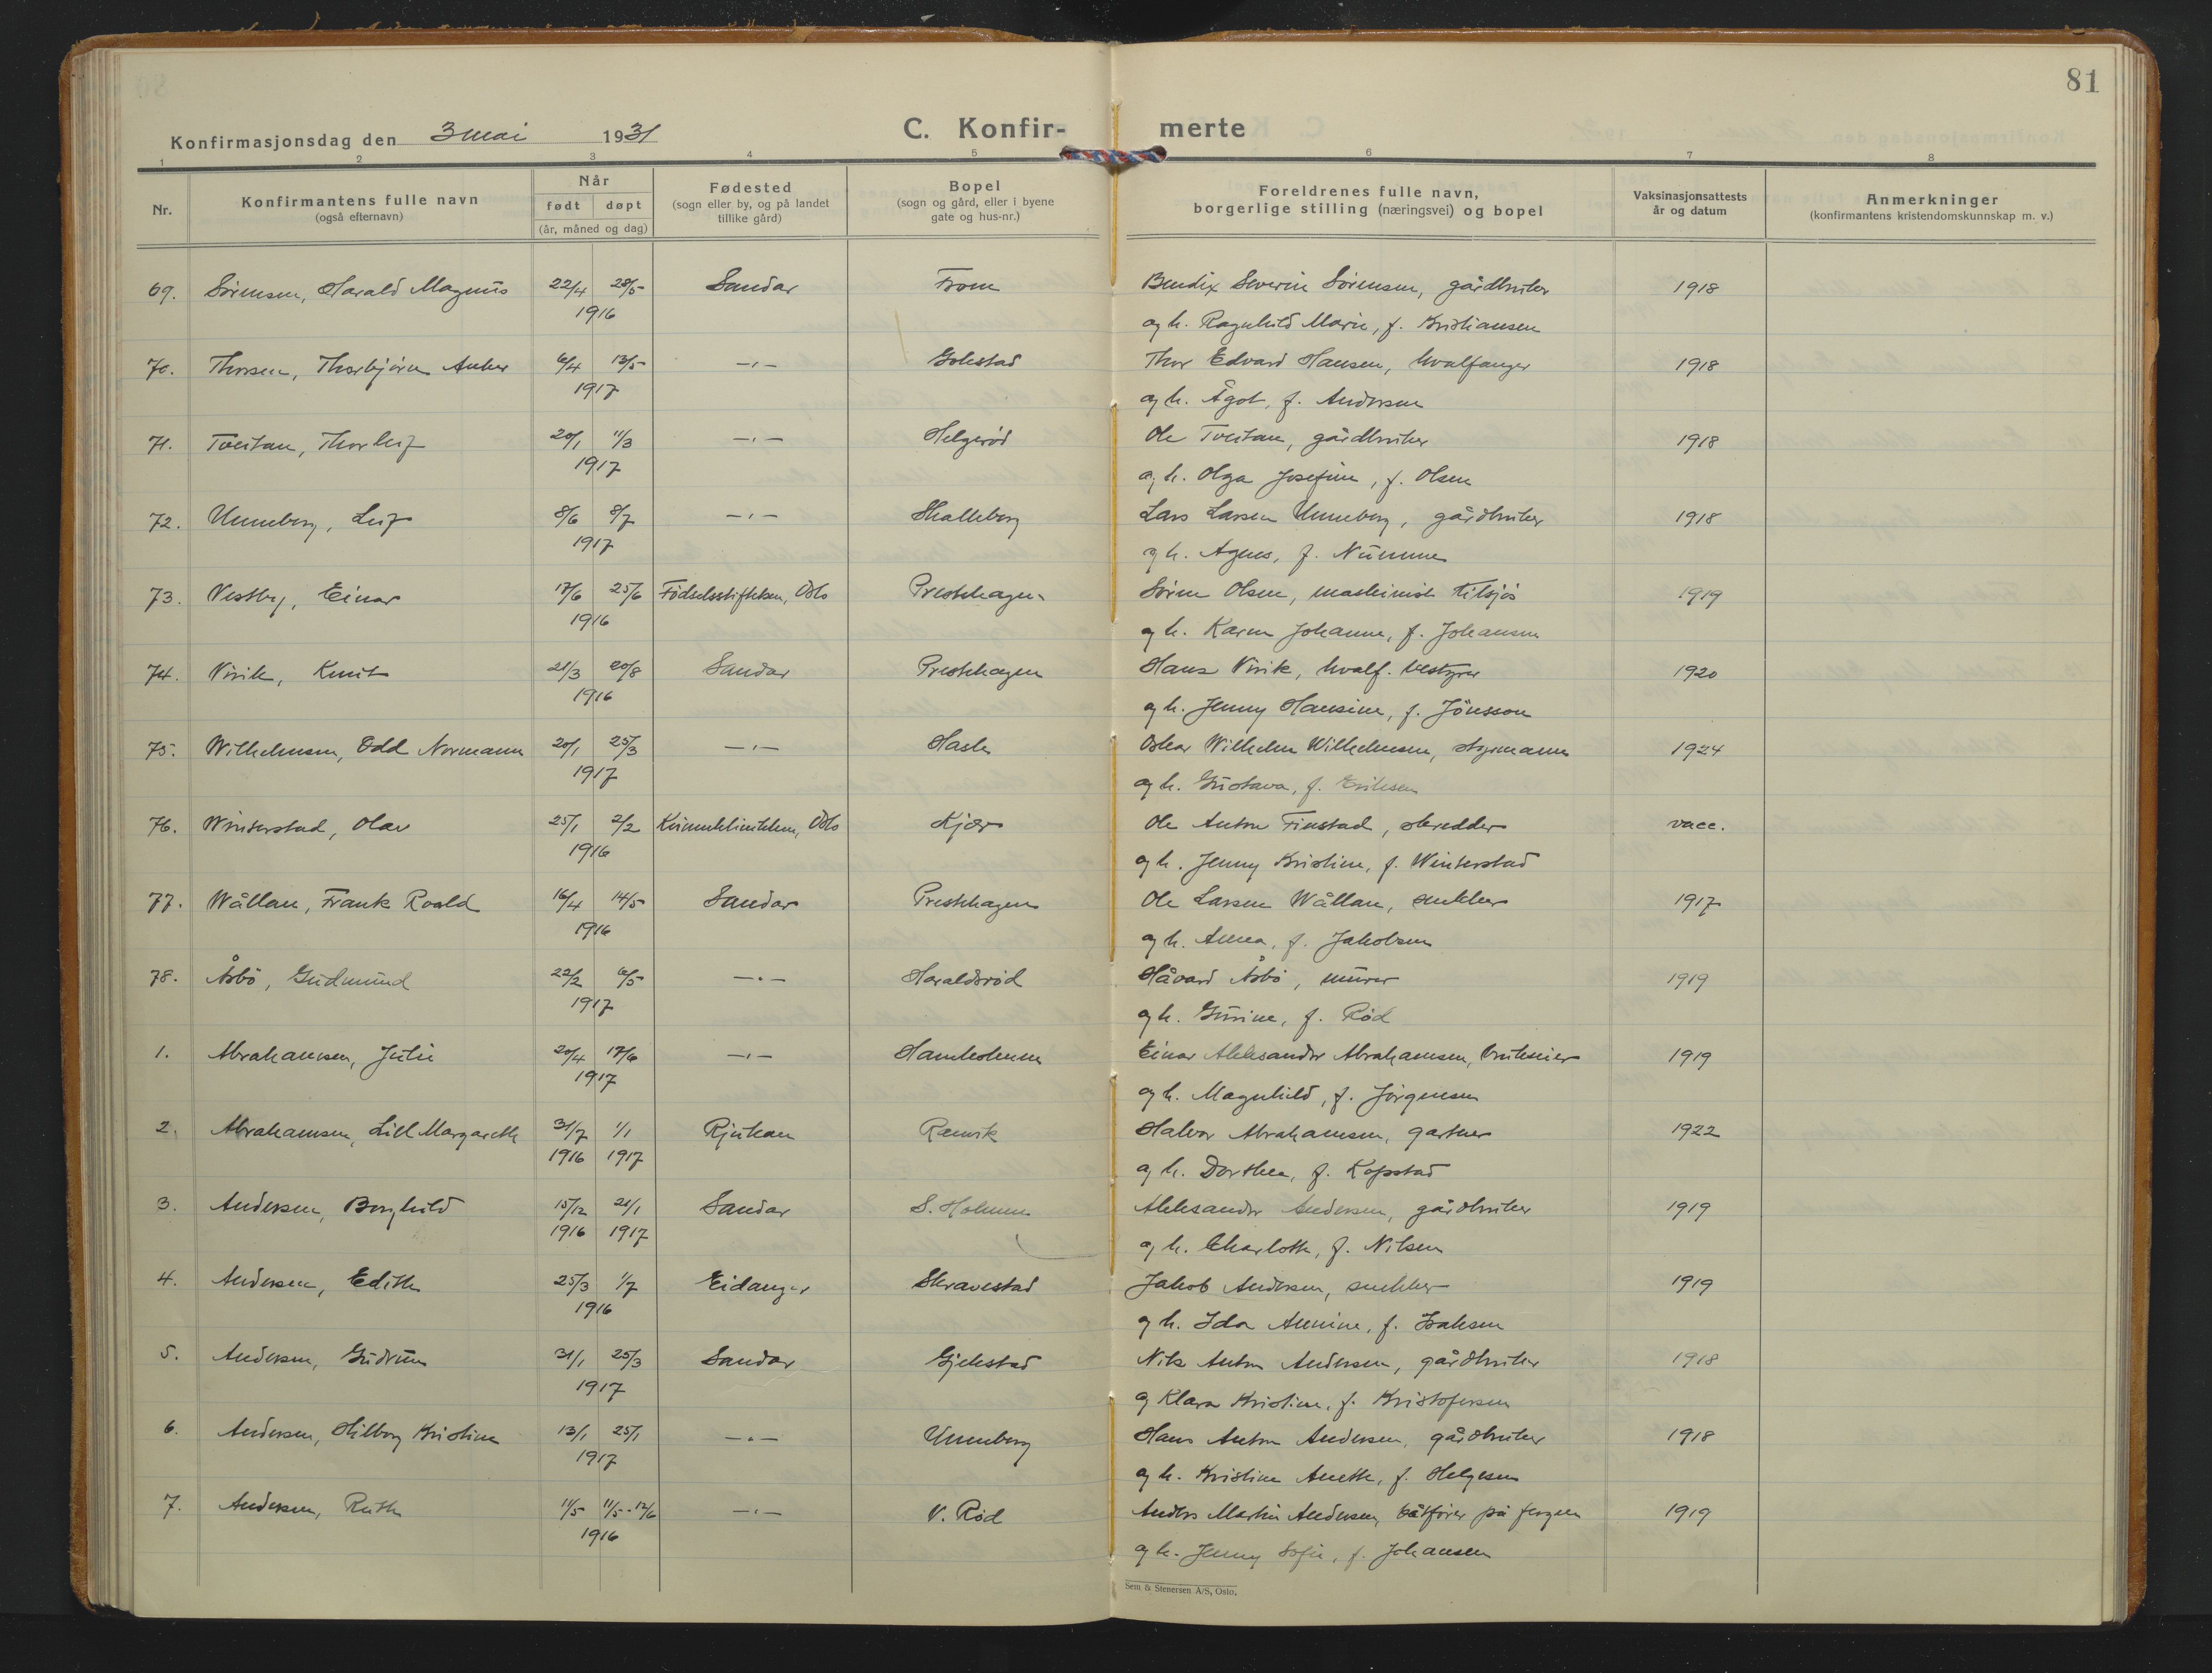 81
Konfirmasjonsdag den 3 mai 1931 C. Konfir- merte
1 2 3 4 5 6 7 8
Nr. Konfirmantens fulle navn (også efternavn) Når født døpt (år, måned og dag) Fødested (sogn eller by, og på landet tillike gård) Bopel (sogn og gård, eller i byene gate og hus-nr.) Foreldrenes fulle navn, borgerlige stilling (næringsvei) og bopel Vaksinasjonsattests år og datum Anmerkninger (konfirmantens kristendomskunnskap m. v.)
69. Sörensen, Harald Magnus 22/4 28/5 Sandar Fröm Bendix Severin Sörensen, gårdbruker 1918
1916 og h. Ragnhild Marie, f. Kristiansen
70. Thorsen, Thorbjörn Anker 6/4 13/5 -"- Gokstad Thor Edvard Hansen, hvalfanger 1918
1917 og h. Ågot, f. Andersen
71. Tveitan, Thorleif 20/1 11/3 -"- Helgeröd Ole Tveitan, gårdbruker 1918
1917 og h. Olga Josefine, f. Olsen
72. Unneberg, Leif 8/6 8/7 -"- Skalleberg Lars Larsen Unneberg, gårdbruker 1918
1917 og h. Agnes, f. Numme
73. Vestby, Einar 17/6 25/6 Födselsstiftelsen, Oslo Presthagen Sören Olsen, maskinist tilsjös 1919
1916 og h. Karen Johanne, f. Johansen
74. Virik, Knut 21/3 20/8 Sandar Presthagen Hans Virik, hvalf. bestyrer 1920
1916 og h. Jenny Hansine, f. Jönsson
75. Wilhelmsen, Odd Normann 20/1 25/3 -"- Hasle Oskar Wilhelm Wilhelmsen, styrmann 1924
1917 og h. Gustava, f. Eriksen
76. Winterstad, Olav 25/1 2/2 Kvinneklinikken, Oslo Kjær Ole Anton Finstad, skredder vacc.
1916 og h. Jenny Kristine, f. Winterstad
77. Wållan, Frank Roald 16/4 14/5 Sandar Presthagen Ole Larsen Wållan, snekker 1917
1916 og h. Anna, f. Jakobsen
78. Åsbö, Gudmund 22/2 6/5 -"- Haraldsröd Håvard Åsbö, murer 1919
1917 og h. Gurine, f. Röd
1. Abrahamsen, Julie 20/4 17/6 -"- Hamholmen Einar Aleksander Abrahamsen, brukseier 1919
1917 og h. Magnhild, f. Jörgensen
2. Abrahamsen, Lill Margareth 31/7 1/1 Rjukan Ranvik Halvor Abrahamsen, gartner 1922
1916 1917 og h. Dorthea, f. Kopstad
3. Andersen, Borghild 15/12 21/1 Sandar S. Holmen Aleksander Andersen, gårdbruker 1919
1916 1917 og h. Charlotte, f. Nilsen
4. Andersen, Edith 25/3 1/7 Eidanger Skravestad Jakob Andersen, snekker 1919
1916 og h. Ida Annine, f. Isaksen
5. Andersen, Gudrun 31/1 25/3 Sandar Gjekstad Nils Anton Andersen, gårdbruker 1918
1917 og Klara Kristine, f. Kristofersen
6. Andersen, Hilborg Kristine 13/1 25/1 -"- Unneberg Hans Anton Andersen, gårdbruker 1918
1917 og h. Kristine Anette, f. Helgesen
7. Andersen, Ruth 11/5 11/5-12/6 -"- V. Röd Anders Martin Andersen, båtförer på fergen 1919
1916 og h. Jenny Sofie, f. Johansen
Sem & Stenersen A/S, Oslo.